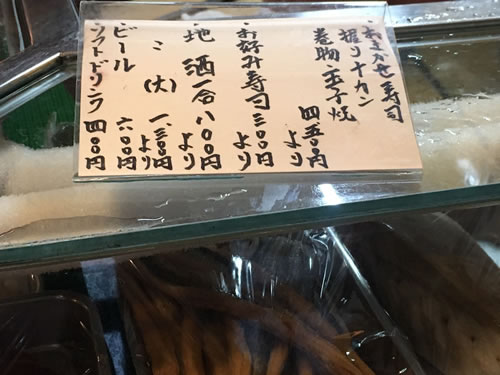 おまかせ寿司
握り十カン
巻物玉子焼
四五〇〇円より
お好み寿司三〇〇円より
地酒一合八〇〇円より
〃(大)一、三〇〇円より
ビール六〇〇円
ソフトドリンク四〇〇円